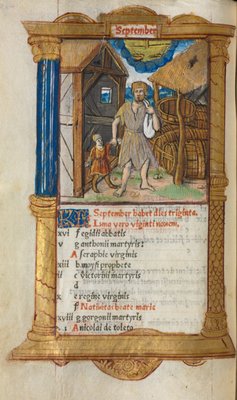 September
September habet dies triginta.
Luna vero viginti novem.
xvi f egidii abbatis
v g anthonii martyris
A seraphie virginis
xiii b moysi prophete
ii c victorini martyris
d
x e regine virginis
f Nativitas beate marie
xviii g gorgonii martyris
A nicolai de toleto